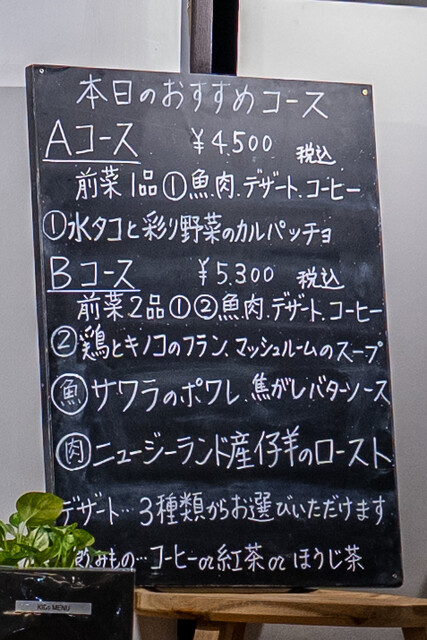 本日のおすすめコース
Aコース ¥4,500 税込
前菜1品①魚.肉.デザート.コーヒー
①水タコと彩り野菜のカルパッチョ
Bコース ¥5,300 税込
前菜2品①②魚.肉.デザート.コーヒー
②鶏とキノコのフラン.マッシュルームのスープ
魚 サワラのポワレ.焦がしバターソース
肉 ニュージーランド産仔羊のロースト
デザート…3種類からお選びいただけます
飲みもの…コーヒーor紅茶orほうじ茶
KIDs MENU